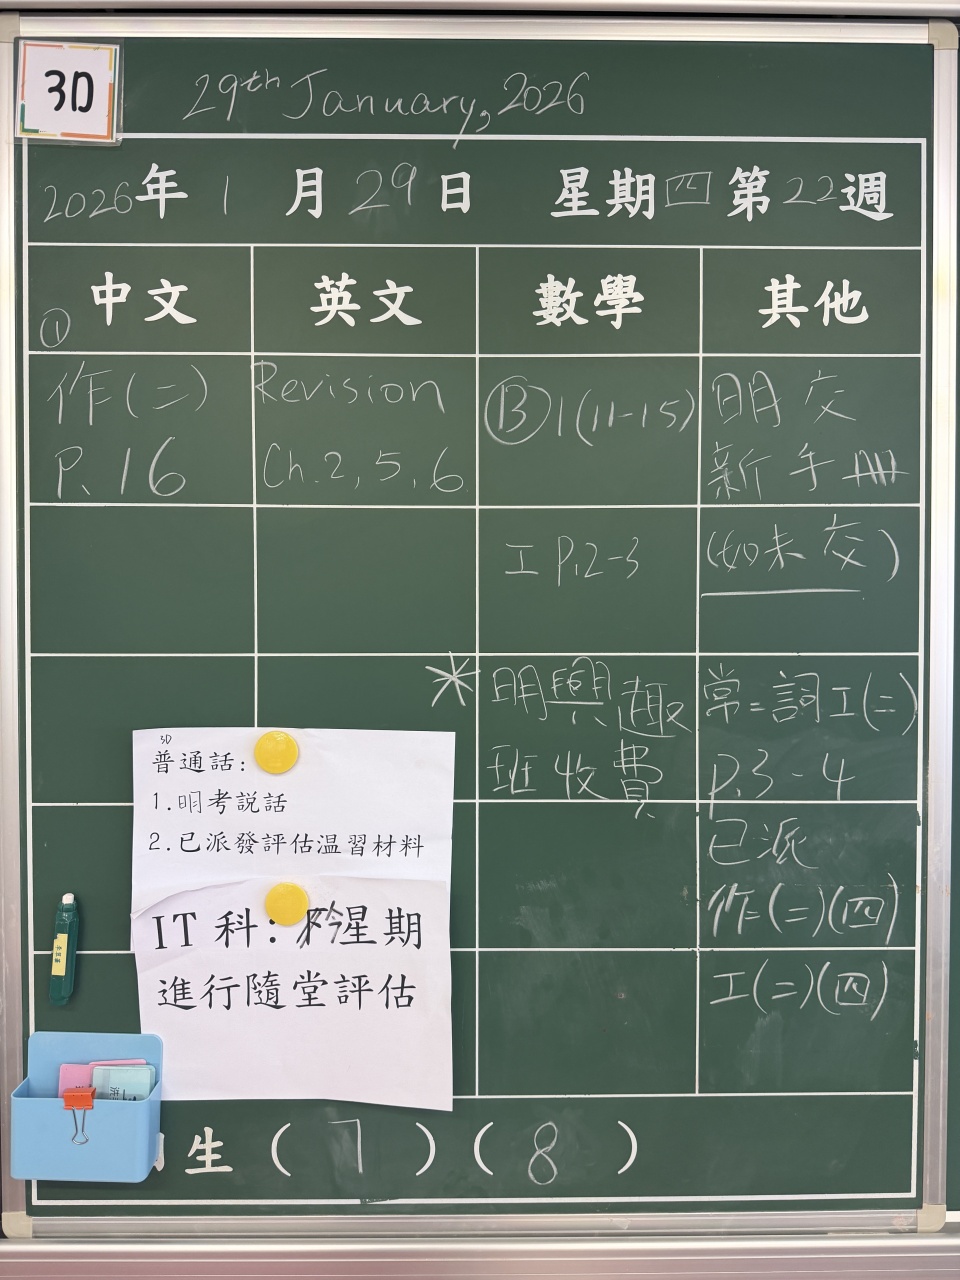 3D
29th January, 2026
2026年1月29日 星期四第22週
中文 英文 數學 其他
①
作(二)
P.16
Revision
Ch.2,5,6
Ⓑ1(11-15)
工P.2-3
*明興趣
班收費
明交
新手冊
(如未交)
常=詞工(二)
P.3-4
已派
作(二)(四)
工(二)(四)
3D
普通話:
1.明考説話
2.已派發評估温習材料
IT科: 星期
進行隨堂評估
生(7)(8)